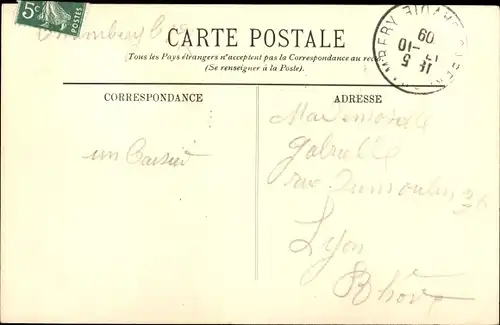 5c
POSTES
Chambery
CARTE POSTALE
(Tous les Pays étrangers n'acceptent pas la Correspondance au rec
(Se renseigner à la Poste).
CORRESPONDANCE
ADRESSE
un Baiser
Mademoiselle
Gabrielle
rue Dumoulin 36
Lyon
Rhône